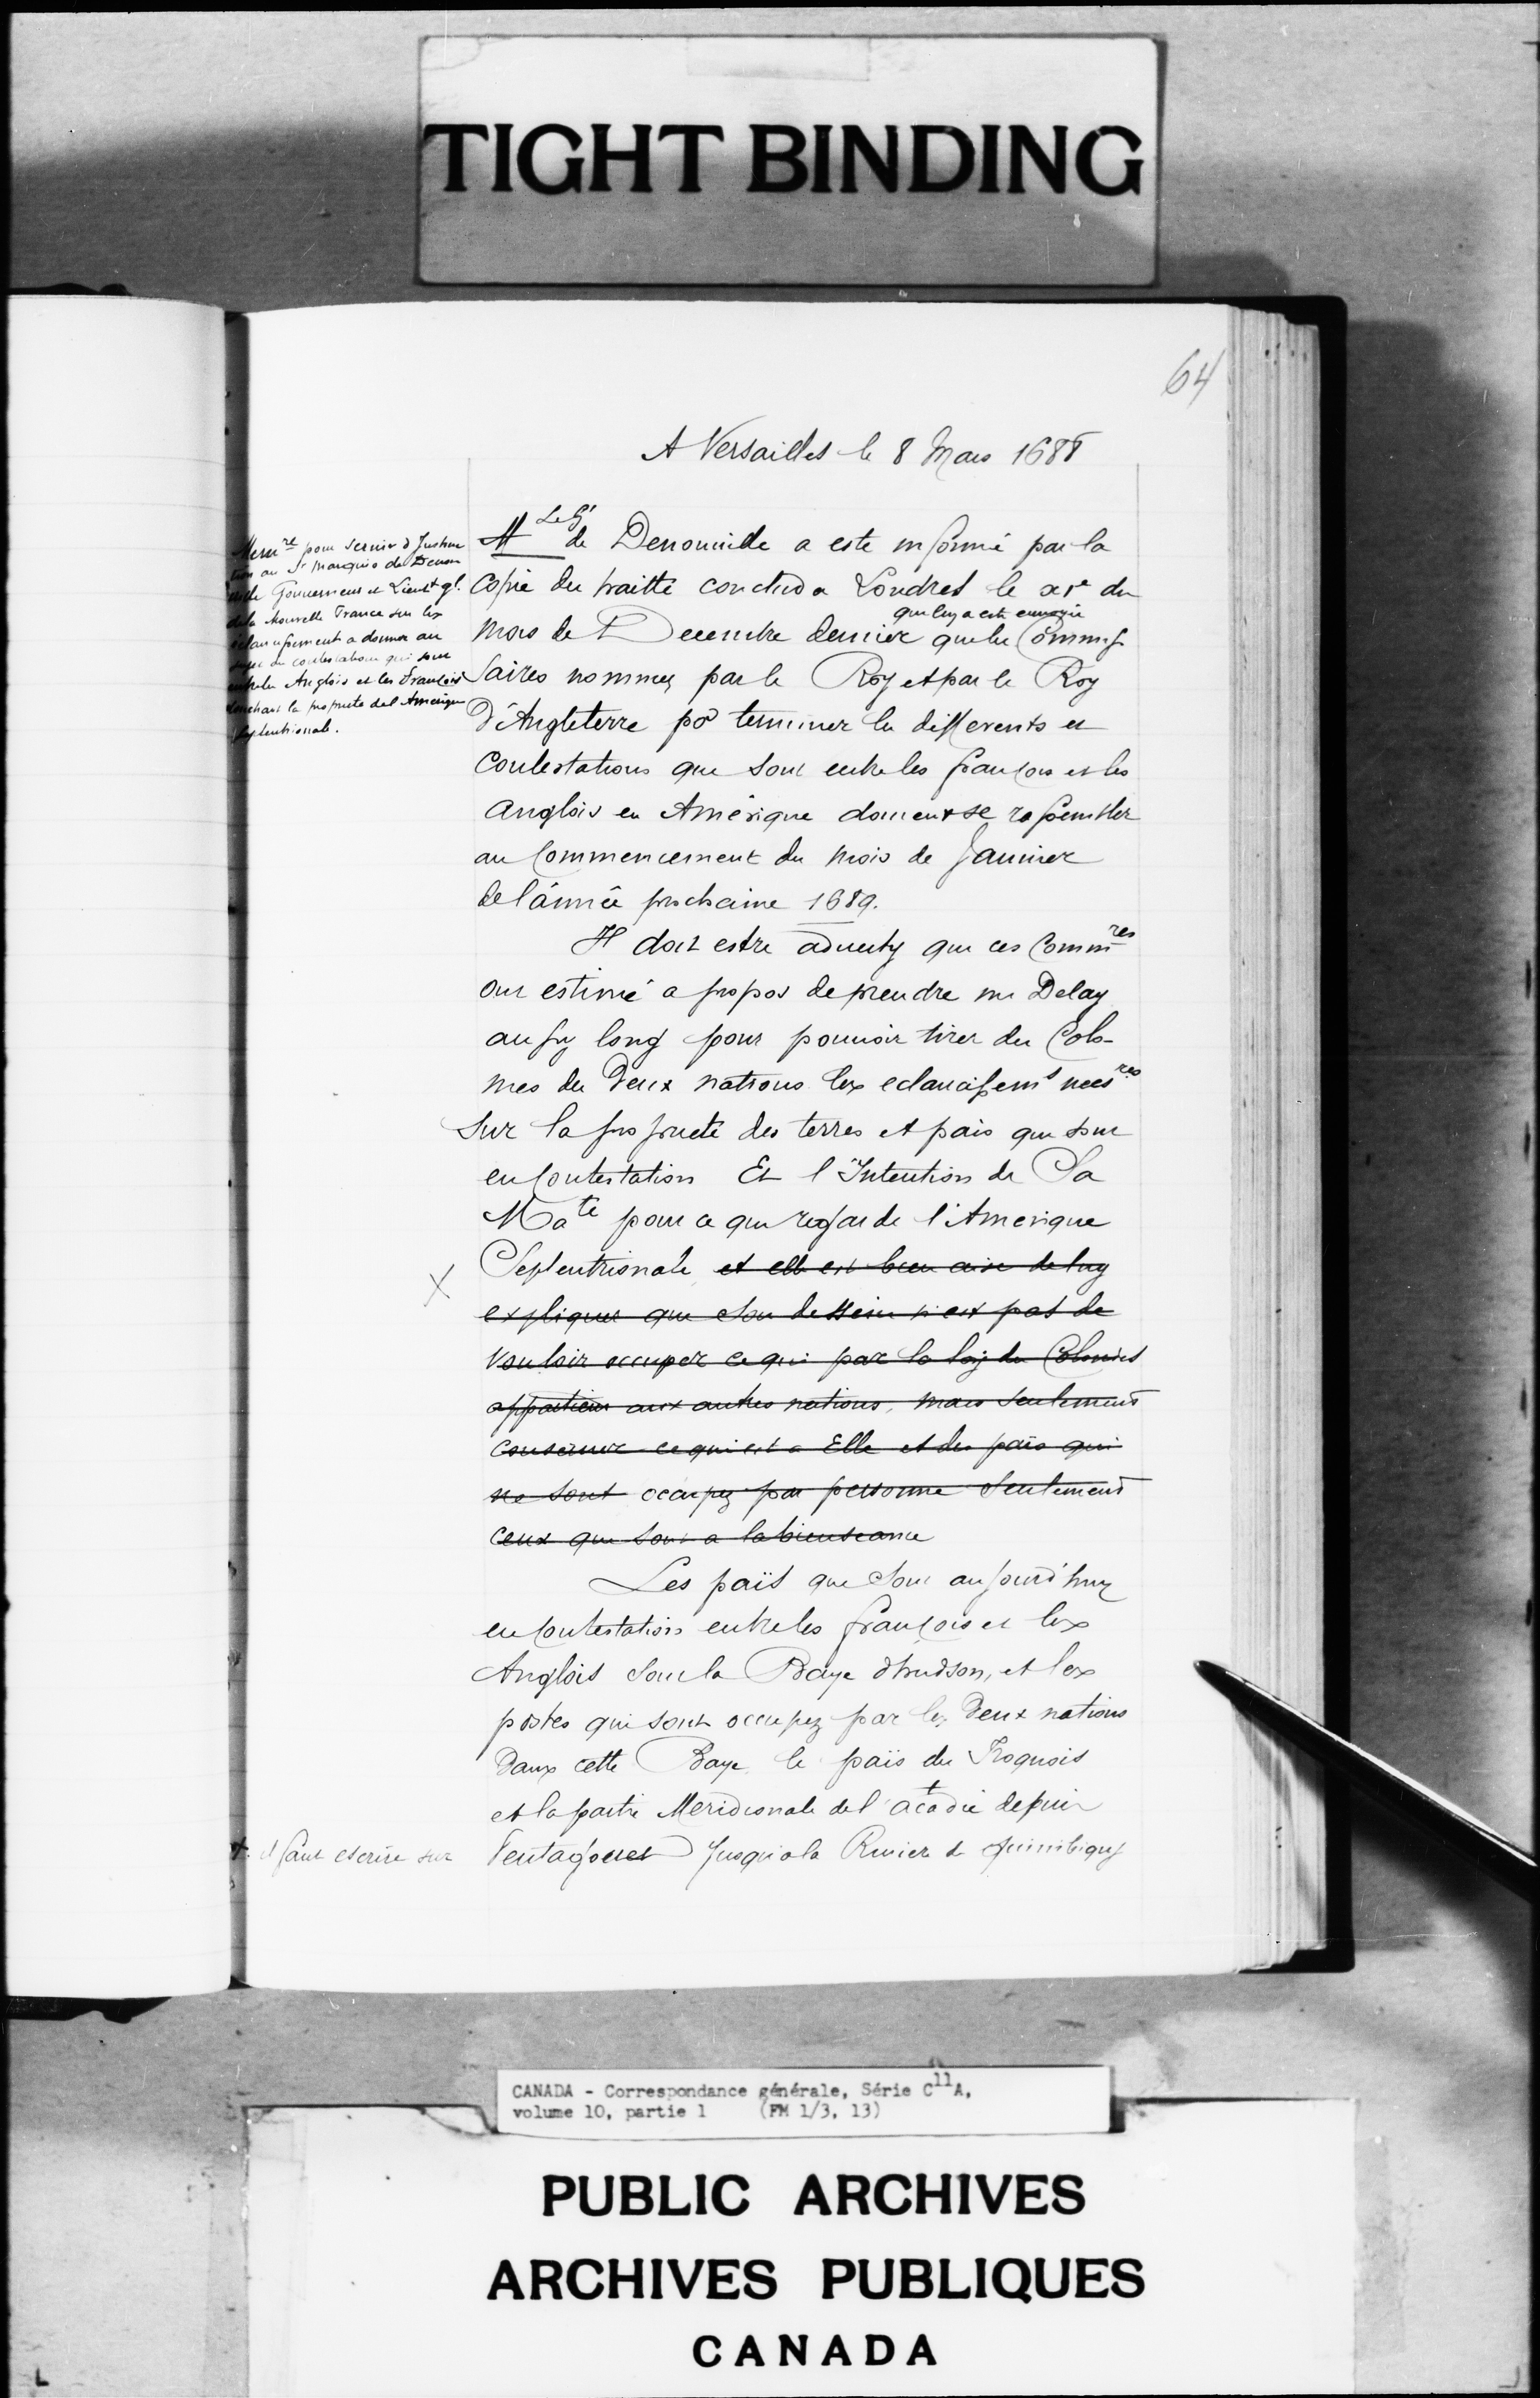 TIGHT BINDING
64
A Versailles le 8 Mars 1688
Memre pour servir d'Instruc
tion au Sr Marquis de Denon
ville Gouverneur et Lieut gl.
dela Nouvelle France sur les
eclaircissements a donner au
sujet des contestations qui sont
entre les Anglois et les François
touchant la propriete del Amerique
septentrionale.
M Le Sr de Denonville a este informé par la
copie du traitté conclud a Londres le xie du
que luy a este envoyée
mois de Decembre dernier que les Commis-
saires nommez par le Roy et par le Roy
D'Angleterre por terminer les differents et
Contestations que sont entre les françois et les
anglois en Amérique doivent se rassembler
au Commencement du mois de Janvier
de l'année prochaine 1689.
Il doit estre adverty que ces Commres
ont estimé a propos de prendre un Delay
aussy long pour pouvoir tirer des Colo-
nies des Deux nations les eclaircissemts necesres
Sur la proprieté des terres et pais que sont
en Contestation Et l'Intention de Sa
Mate pour ce que regarde l'Amerique
X Septentrionale et elle est bien aise de luy
expliquer que son dessein n'est pas de
vouloir occuper ce qui par la loy des Colonies
appartient aux autres nations, mais seulement
conserver ce qui est a Elle et des pais qui
ne sont occupez par personne seulement
ceux que sont a la bienseance
Les païs que sont aujourd'huy
en Contestation entre les françois et les
Anglois sont la Baye d'hudson, et les
postes qui sont occupez par les Deux nations
Dans cette Baye le païs des Iroquois
et la partie Meridionale del'acadie depuis
+. il faut escrire sur
Pentagouet Jusqu'a la Riviere de Quinibiquy
CANADA - Correspondance générale, Série C11A,
volume 10, partie 1 (FM 1/3, 13)
PUBLIC ARCHIVES
ARCHIVES PUBLIQUES
CANADA